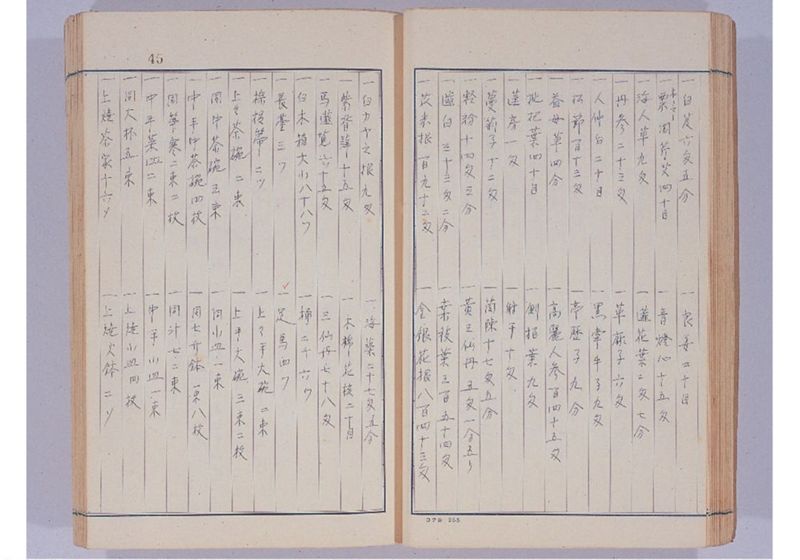 一白芨六匁五分 一良姜二十目
四十目 一青燈心十五匁
一海人草九匁 一蓮花葉二匁七分
一丹参二十三匁 一草麻子六匁
一人仲白二十目 一黒牽牛子九匁
一松節百十三匁 一亭歴子九分
一益母草四分 一高麗人参百四十五匁
一枇杷葉四十目 葉九匁
一蓮房一匁 一射干十匁
一蔓荊子十二匁 一茵陳十七匁五分
一軽粉十四匁三分 一黄三仙丹五匁一分五り
白三十三匁二分 葉三百五十四匁
一茨米根一百九十二匁 一金銀花根八百四十三匁
コクヨ 255
45
一白カヤノ根九匁 一海藻二十七匁五分
一紫背華十五匁 一木棉花核二十目
一馬 莧六十五匁 一三仙丹七十八匁
一白木箱大小八十八ツ 一棒二十六ツ
一長臺三ツ 一足馬四ツ
帶二ツ 一上々平大碗二束
一上々茶碗二束 一上平大碗三束二枚
一同中茶碗三束 一同小皿一束
一中平中茶碗四枚 一同七寸鉢一束八枚
一同 二束二枚 一同汁 二束
一中平菜皿二束 一中平小皿一束
一同大杯五束 一上焼小皿四枚
一上焼茶家十六ツ 一上焼火鉢二ツ